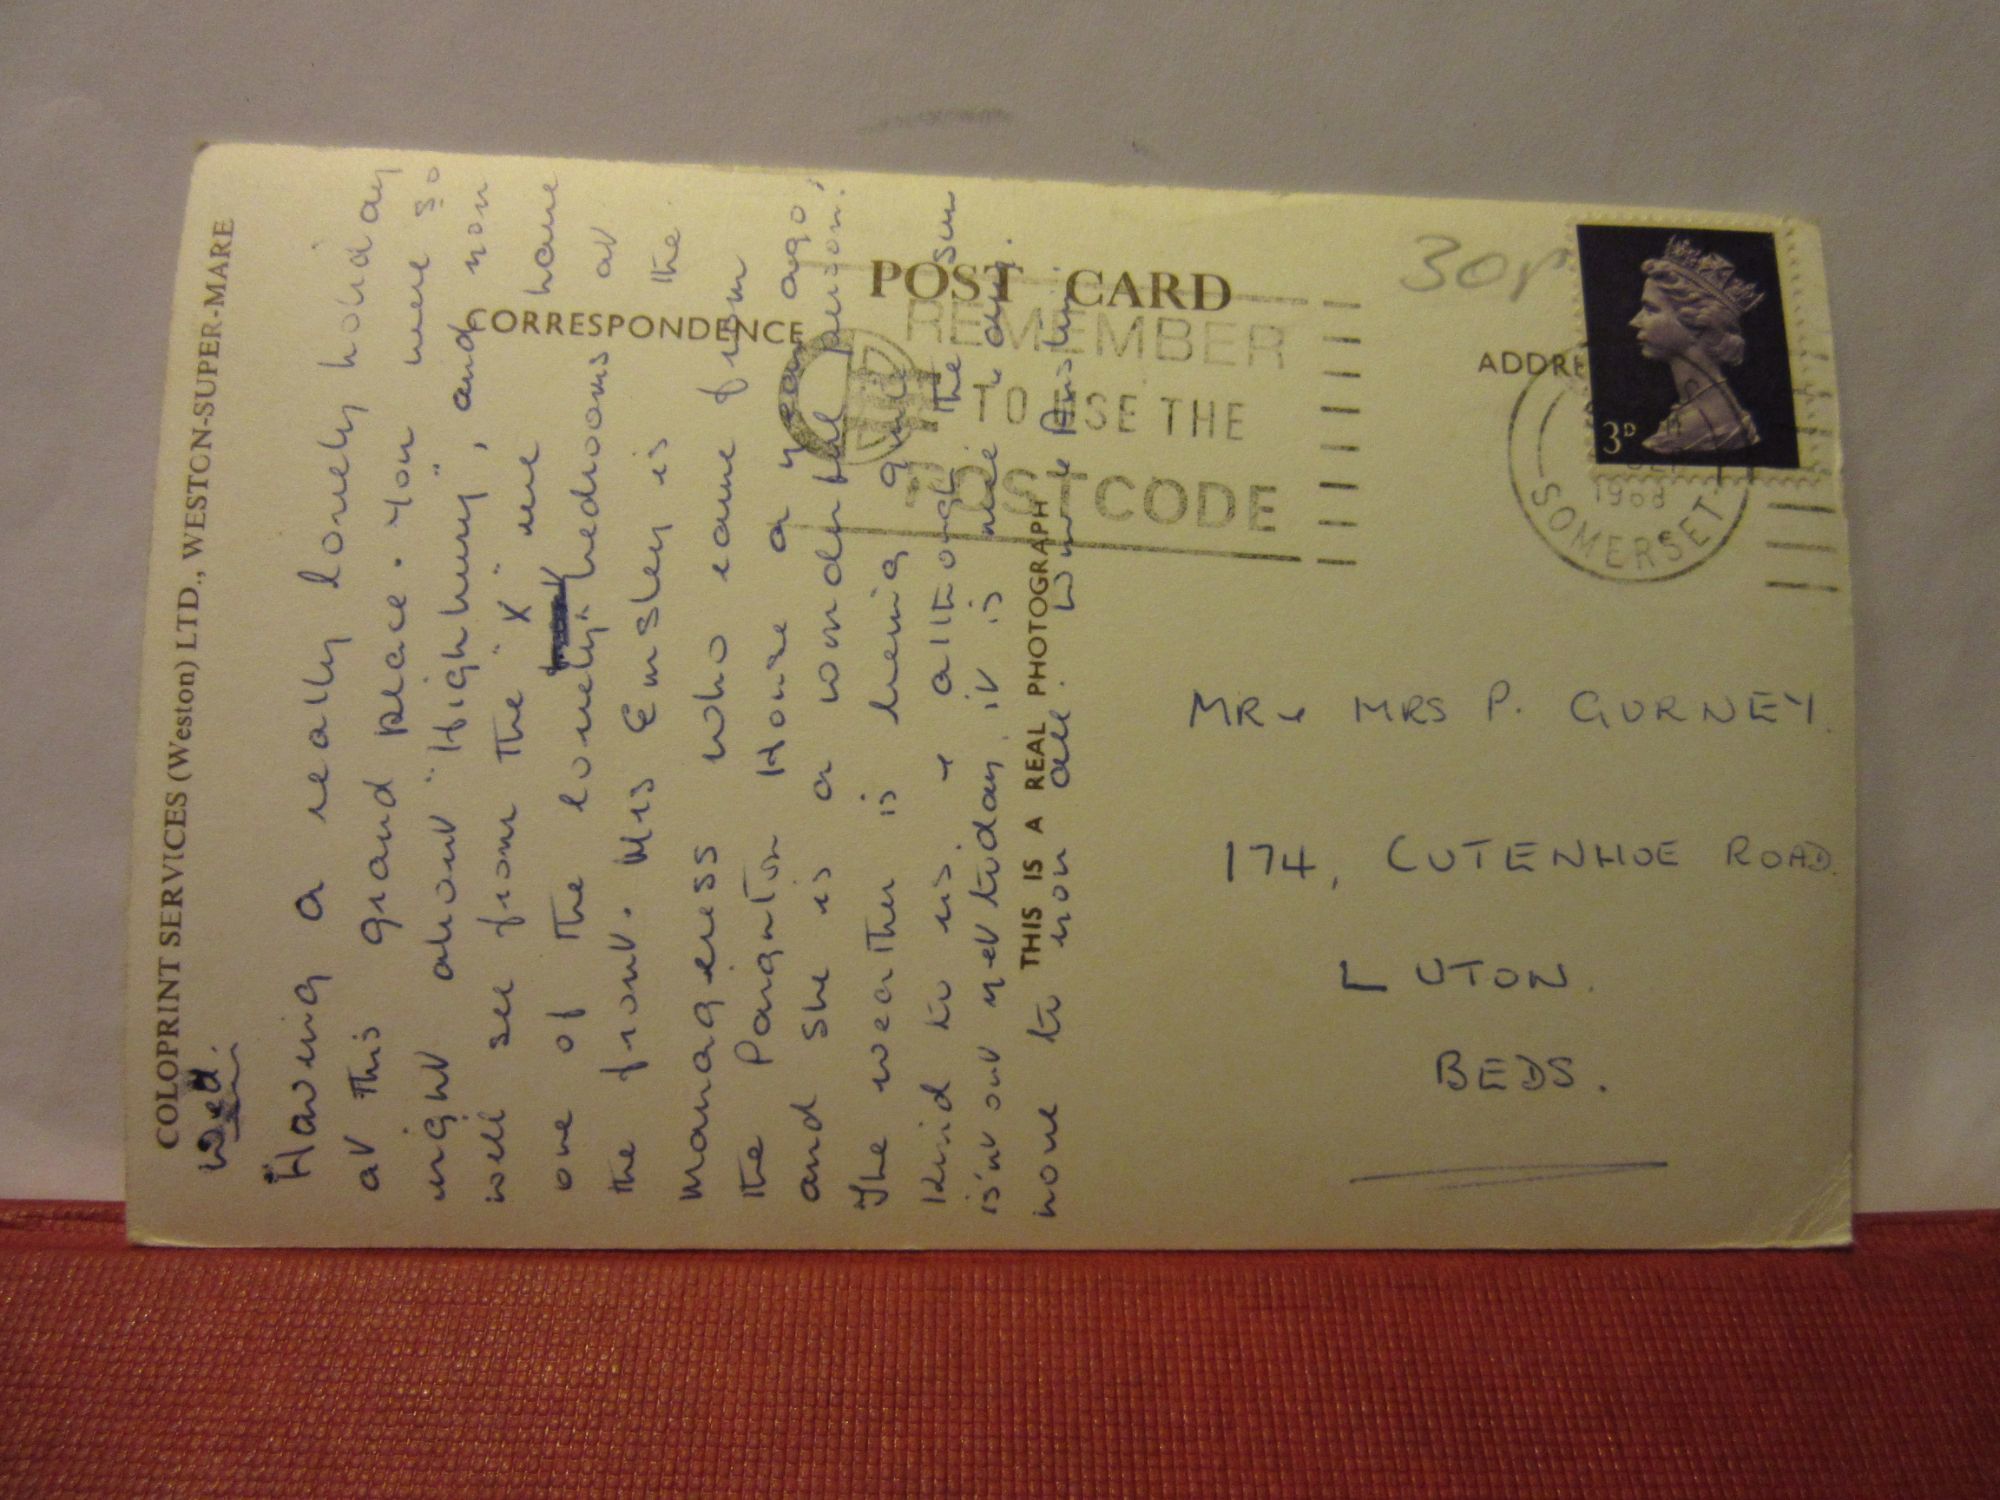 COLOPRINT SERVICES (Weston) LTD., WESTON-SUPER-MARE
Wed.
Having a really lovely holiday
at this grand place. You were so
right about "Highbury", and you
will see from the "X" we have
one of the lovely bedrooms at
the front. Mrs Emsley is the
Manageress who came from
the Paignton House a year ago
and she is a wonderful person!
The weather is being quite
kind to us, & although the sun
is'nt out yet today, it is nice & dry.
Love to you all. Win & Austin.
CORRESPONDENCE
POST CARD
ADDRE
THIS IS A REAL PHOTOGRAPH
REMEMBER
TO USE THE
POSTCODE
30p
3D
SOMERSET
MR & MRS P. GURNEY
174, CUTENHOE ROAD
LUTON.
BEDS.